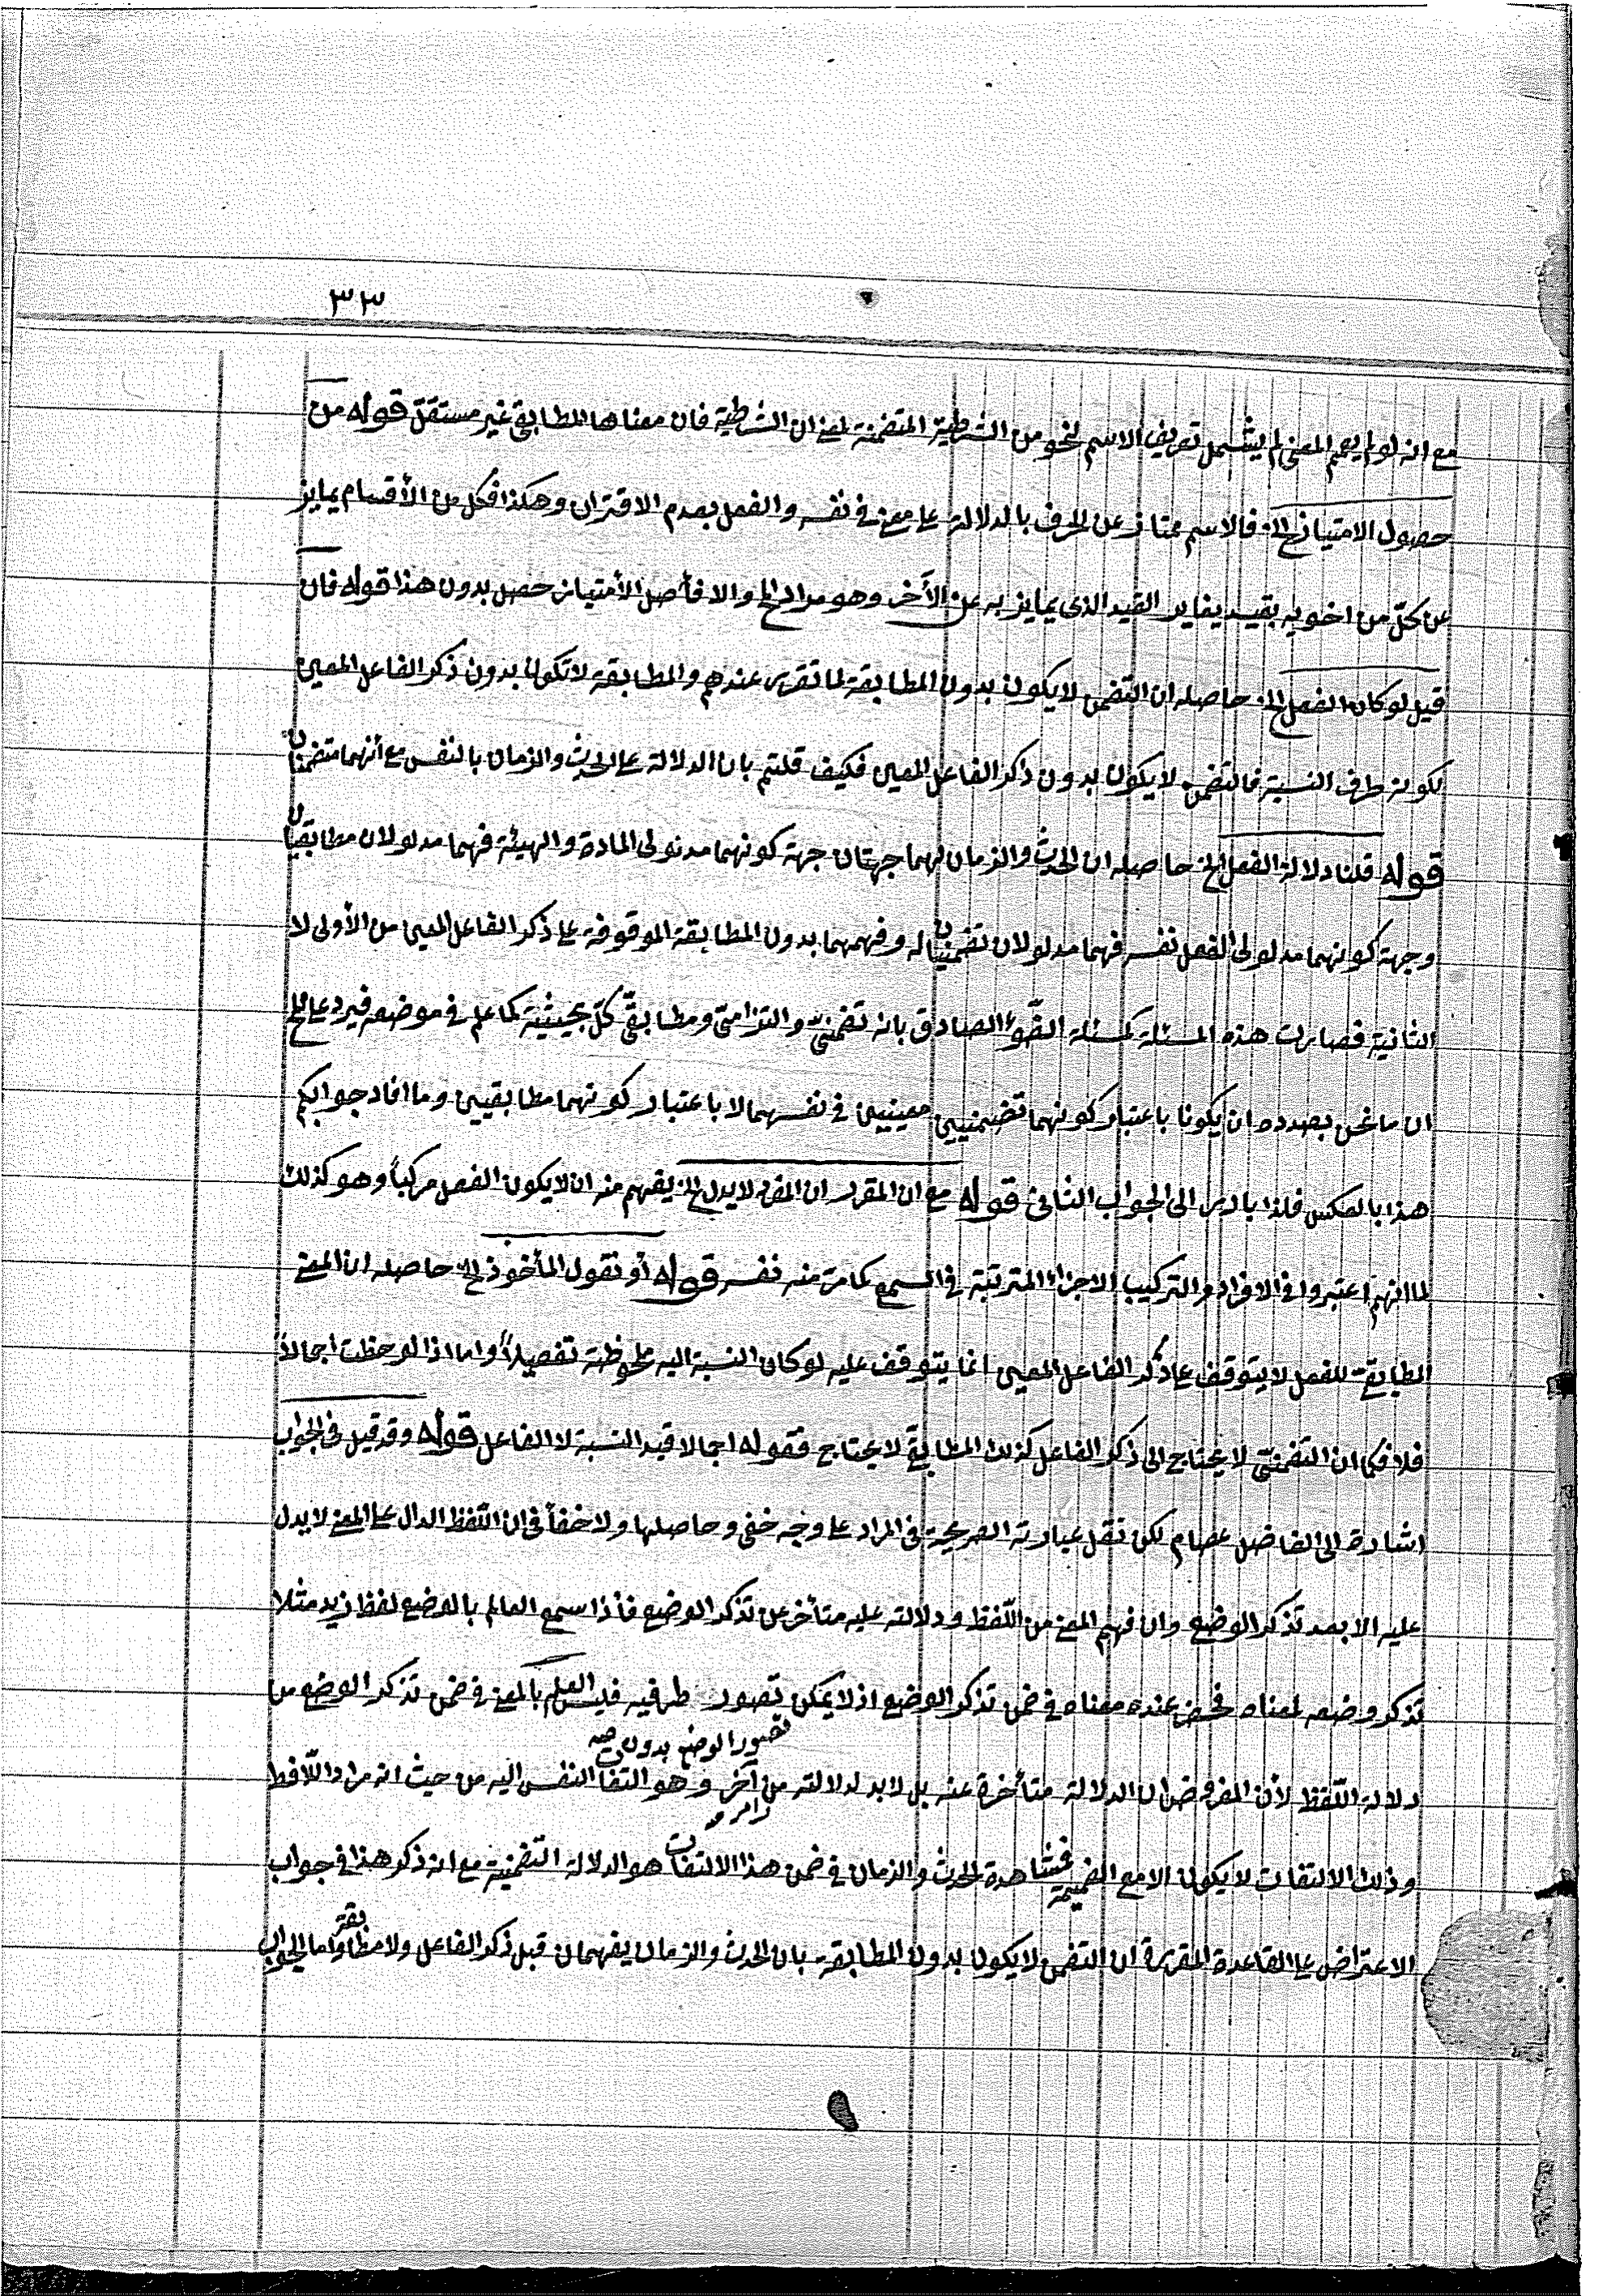 ٣٣
مع انه لو لم يعم المعنى لم يشمل تعريف الاسم لنحو من الشرطية المتضمنة لمعنى ان الشرطية فان معناها المطابقي غير مستقل قوله من
حصول الامتياز الخ فالاسم ممتاز عن الحرف بالدلالة على معنى في نفسه والفعل بعدم الاقتران وهكذا فكل من الأقسام يمايز
عن كلّ من اخويه بقيد يغاير القيد الذى يمايز به عن الأخر وهو مراد الخ والا فأصل الأمتياز حصل بدون هذا قوله فان
قيل لو كان الفعل الخ حاصله ان التضمن لا يكون بدون المطابقة لما تقرر عندهم والمطابقة لا تكون بدون ذكر الفاعل المعين
لكونه طرف النسبة فالتضمن لا يكون بدون ذكر الفاعل المعين فكيف قلتم بان الدلالة على الحدث والزمان بالنفس مع أنهما متضمنان
قوله قلنا دلالة الفعل الخ حاصله ان الحدث والزمان لهما جهتان جهة كونهما مدلولى المادة والهيئة فهما مدلولان مطابقيان
وجهة كونهما مدلولى الفعل نفسه فهما مدلولان تضمنيان له وفهمهما بدون المطابقة الموقوفة على ذكر الفاعل المعين من الأولى لا
الثانية فصارت هذه المسئلة كمسئلة الضوء الصادق بانه تضمنيّ والتزاميّ ومطابقيّ كلّ بحيثية كما علم في موضعه فيرد على
ان ما نحن بصدده ان يكونا باعتبار كونهما تضمنيين معينيين في نفسهما لا باعتبار كونهما مطابقيين وما افاد جوابكم
هذا بالعكس فلذا بادر الى الجواب الثانى قوله مع ان المقرر ان المفرد لا يدل الخ يفهم منه ان لا يكون الفعل مركباً وهو كذلك
لما انهم اعتبروا في الافراد والتركيب الاجزاء المترتبة في السمع كما مرّ منه نفسه قوله أو نقول المأخوذ الخ حاصله ان المعنى
المطابقيّ للفعل لا يتوقف على ذكر الفاعل المعين انما يتوقف عليه لو كان النسبة اليه ملحوظة تفصيلاً واما اذا لوحظت اجمالاً
فلا فكما ان التضمنيّ لا يحتاج الى ذكر الفاعل كذلك المطابقيّ لا يحتاج فقوله اجمالا قيد النسبة لا الفاعل قوله وقد قيل في الجواب
اشارة الى الفاضل عصام لكن نقل عبارته الصريحة في المراد على وجه خفي وحاصلها ولا خفأ في ان اللّفظ الدال على المعنى لا يدل
عليه الا بعد تذكر الوضع وان فهم المعنى من اللّفظ ودلالته عليه متأخر عن تذكر الوضع فأذا سمع العالم بالوضع لفظ زيد مثلا
تذكر وضعه لمعناه فحضر عنده معناه في ضمن تذكر الوضع اذ لا يمكن تصور طرفيه فليس العلم بالمعنى في ضمن تذكر الوضع من
تصور الوضع بدون
دلالة اللّفظ لأن المفروض ان الدلالة متأخرة عنه بل لا بد لدلالته من آخر وهو التفات النفس اليه من حيث انه مراد اللّافظ
وذلك الالتفات لا يكون الا مع الضميمة فمشاهدة الحدث والزمان في ضمن هذا الالتفات هو الدلالة التضمنية مع انه ذكر هذا في جواب
الاعتراض على القاعدة المقررة ان التضمن لا يكون بدون المطابقة بان الحدث والزمان يفهمان قبل ذكر الفاعل ولا مطابقة واما الجواب